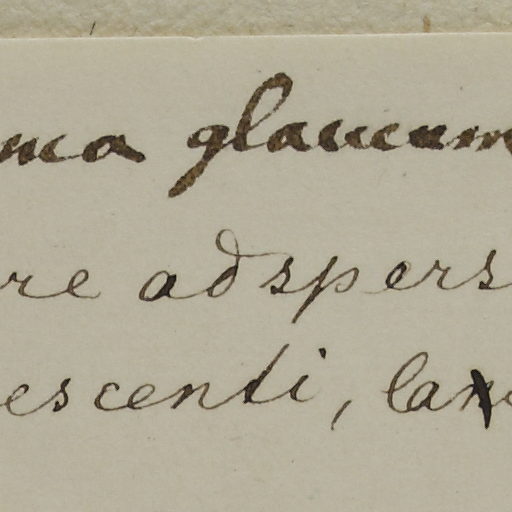 ma glaucum
re adspers
escenti, lan